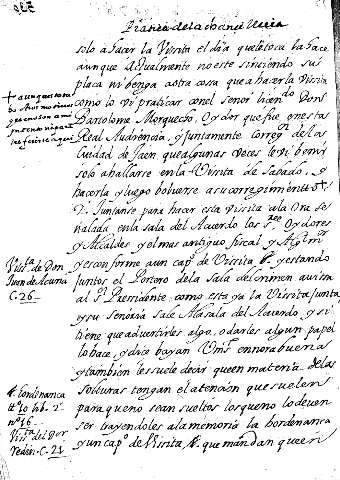 Pratica de la chancilleria
solo a hacer la Vissita el dia que le toca la hace
aunque Actualmente no este sirviendo su
plaça ni benga a otra cosa que a hacer la Vissita
como lo vi praticar con el señor licen.do Don
Bartolome Morquecho, Oydor que fue en esta
Real Audiencia, y juntamente correg.r de la
Ciudad de Jaen que algunas veces le vi benir
solo a hallarse en la Vissita de Savado, y
hacerla y luego bolverse a su corregimiento
Juntanse para hacer esta vissita a la Ora se
ñalada, en la sala del Acuerdo los S.res Oydores
y Alcaldes y el mas antiguo fiscal y Alg.l m.r
y es conforme a un cap.o de Vissita y estando
juntos el Portero de la Sala del crimen avissa
al S.r Pressidente como esta ya la Vissita junta
y su señoria sale a la sala del Acuerdo, y si
tiene que advertirles algo, o darles algun papel
lo hace, y dice bayan Vms en norabuena
y tambien les suele decir que en materia de las
solturas tengan el atencion que suelen
para que no sean sueltos los que no lo deven
ser trayendoles a la memoria la hordenansa
y un cap.o de Vissita que mandan que en
+ aunque
Viss.ta de Don
Juan de Acuña
C. 26
Hordenanca
lib. 2
n.o 16
Viss.ta del Dor
C. 21